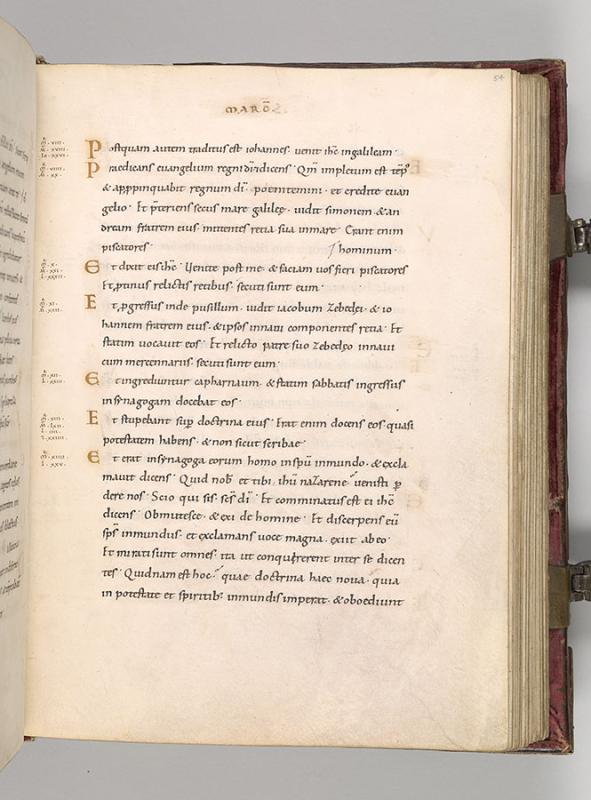 54
MARCŪ
Postquam autem traditus est iohannes. uenit ihc̄ ingalileam.
Praedicans euangelium regni dī dicens. Qm̄ impletum est temp̄
& appropinquabit regnum dī. poenitemini. et credite euan
gelio. Et p̄teriens secus mare galileę. uidit simonem. & an
dream fratrem eius mittentes retia sua inmare. Erant enim
piscatores. / hominum.
Et dixit eis ihc̄. Uenite post me. & faciam uos fieri piscatores
Et ꝓtinus relictis retibus. secuti sunt eum.
Et ꝓgressus inde pusillum. uidit iacobum Zebedei. & io
hannem fratrem eius. & ipsos innaui componentes retia. Et
statim uocauit eos. Et relicto patre suo Zebedęo innaui
cum mercennariis. secuti sunt eum.
Et ingrediuntur capharnaum. & statim sabbatis ingressus
insynagogam docebat eos.
Et stupebant suꝑ doctrina eius. Erat enim docens eos quasi
potestatem habens. & non sicut scribae.
Et erat insynagoga eorum homo inspū inmundo. & excla
mauit dicens. Quid nob̄ et tibi ihū nazarene uenisti ꝑ
dere nos. Scio qui sis. sc̄s dī. Et comminatus est ei ihc̄
dicens. Obmutesce. & exi de homine. Et discerpens eū
sps̄ inmundus. et exclamans uoce magna. exiit ab eo.
Et mirati sunt omnes. ita ut conquirerent inter se dicen
tes. Quidnam est hoc. quae doctrina haec noua. quia
in potestate et spiritib; inmundis imperat. & oboediunt